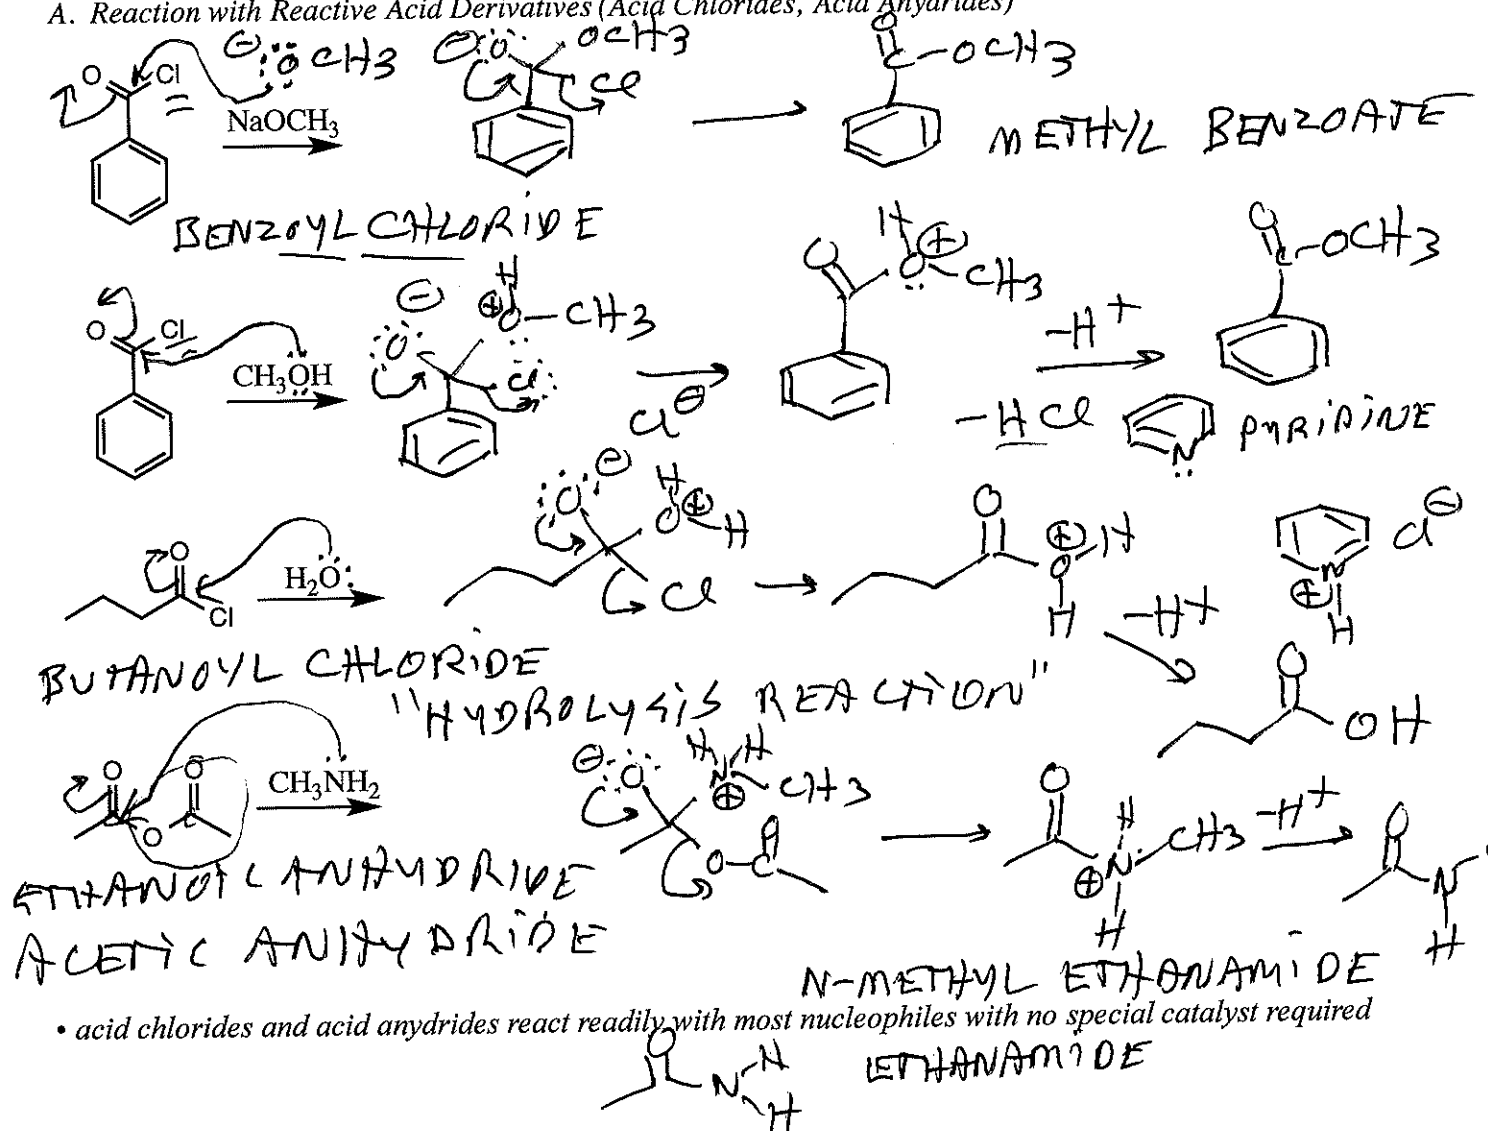 A. Reaction with Reactive Acid Derivatives (Acid Chlorides, Acid Anydrides)
O Cl ⊖ :ÖCH3 ⊖ :O: OCH3 Cl O C-OCH3
NaOCH3
METHYL BENZOATE
BENZOYL CHLORIDE
O Cl CH3OH ⊖ :O: H ⊕ O-CH3 :Cl: Cl⊖ O H ⊕ O-CH3 -H+ O C-OCH3
-HCl N: PYRIDINE
O Cl H2O: :O: ⊖ H O ⊕ H Cl O ⊕ O H H -H+ N ⊕ H Cl⊖
BUTANOYL CHLORIDE
"HYDROLYSIS REACTION"
O OH
O O O CH3NH2 ⊖ :O: H H N ⊕ CH3 O-C O O H N ⊕ CH3 H -H+ O N H
ETHANOIC ANHYDRIDE
ACETIC ANHYDRIDE
N-METHYL ETHANAMIDE
• acid chlorides and acid anydrides react readily with most nucleophiles with no special catalyst required
O N H H ETHANAMIDE